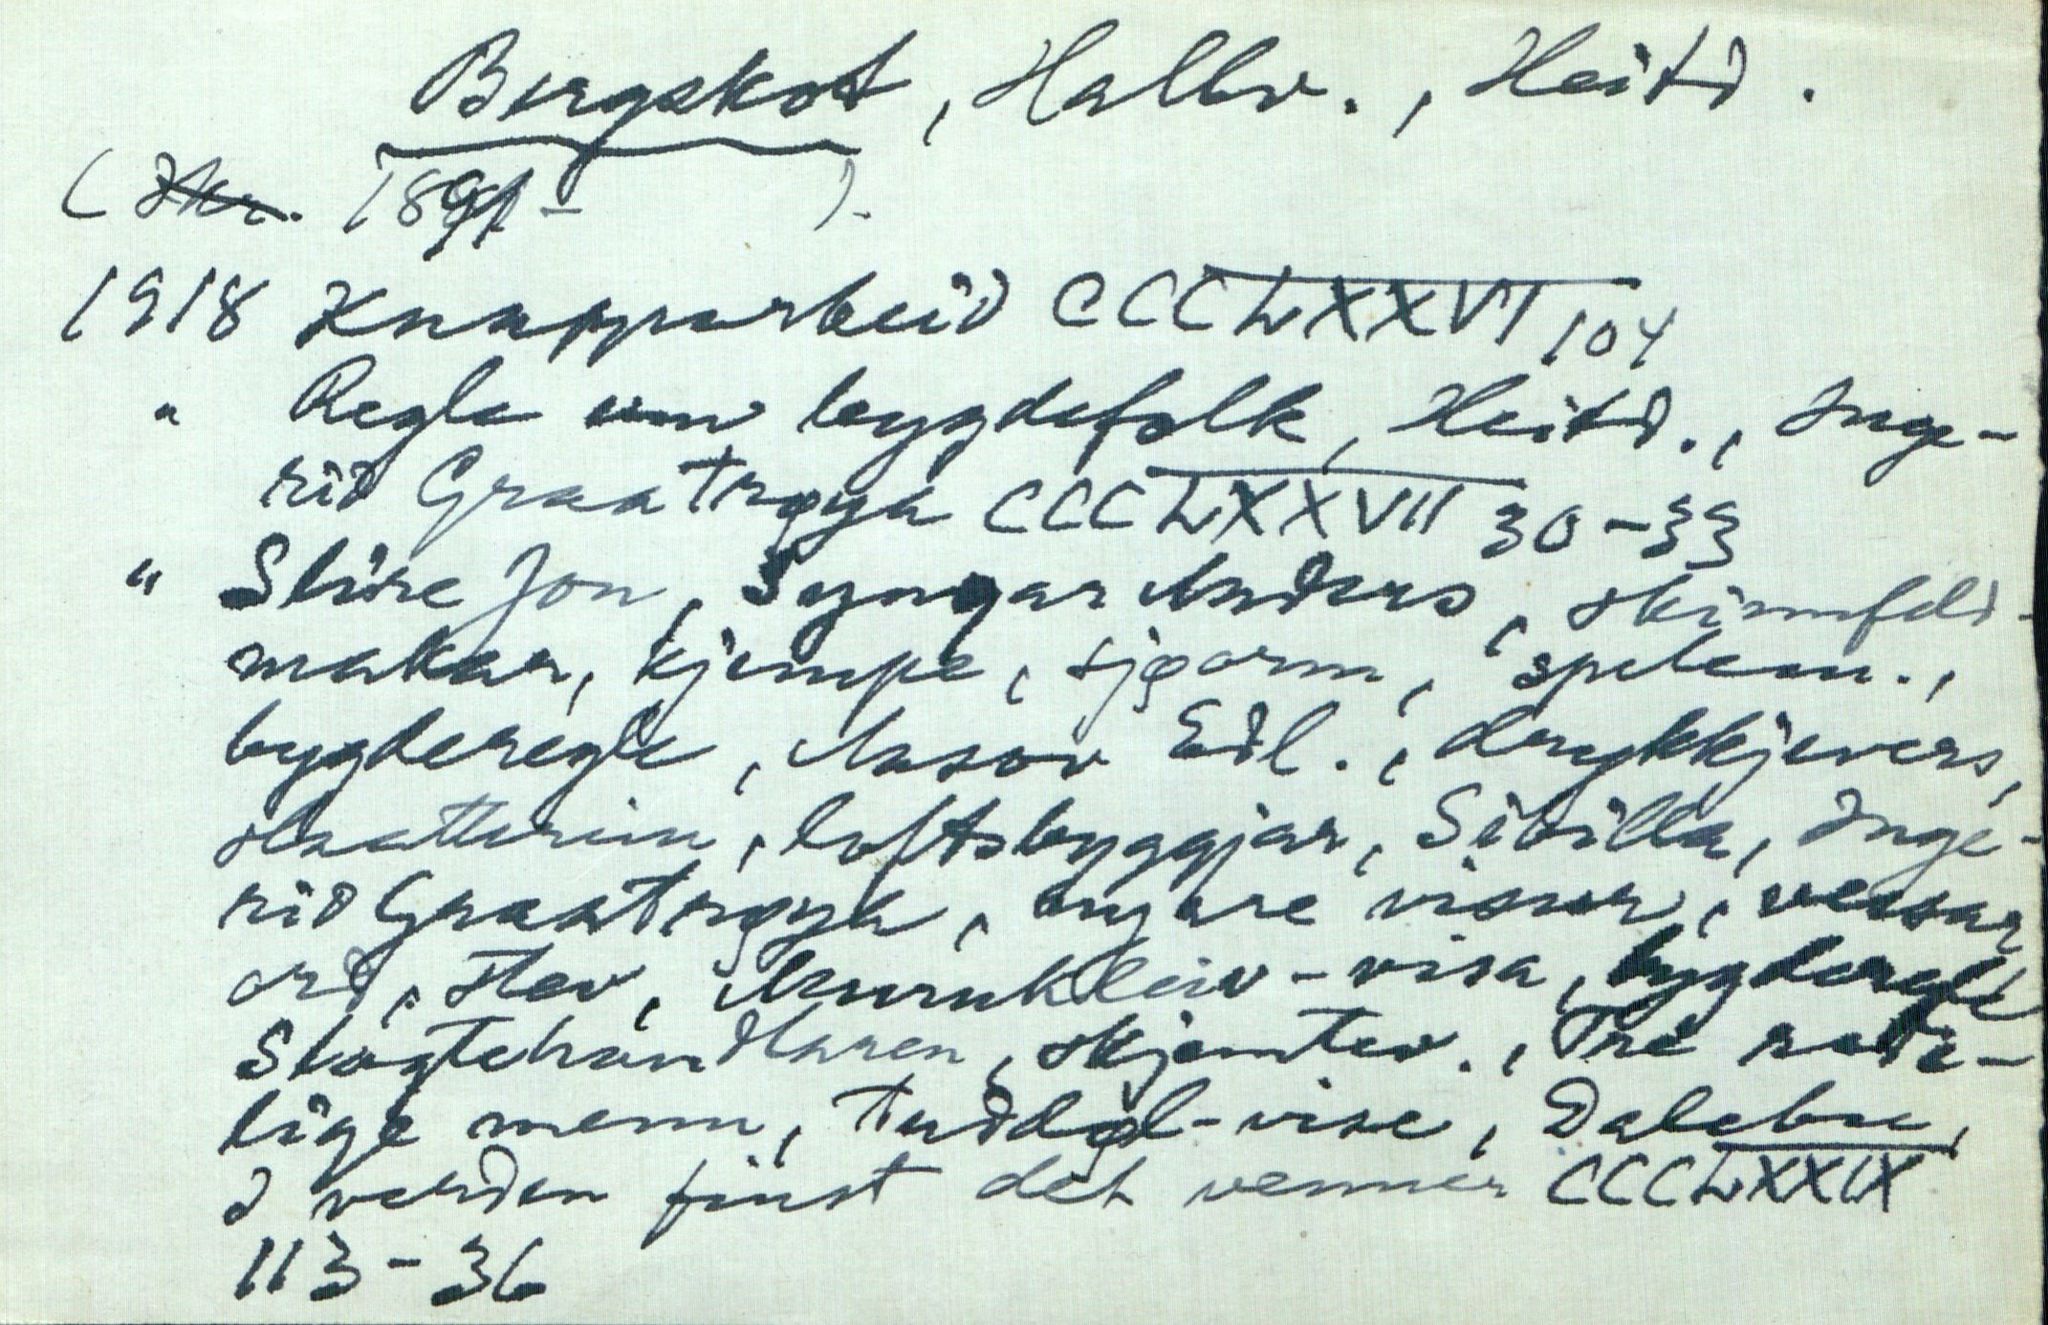 Bergskot, Hallv., Heitd.
( 1891 - ).
1918 Knapparbeid CCCLXXVI 104
" Regle um bygdefolk, Heitd., Inge-
rid Graatrøyk CCCLXXVII 30-33
" Slire Jon, Syngar Anders, skinnfeld-
makar, kjempe, sjøorm, spelem.,
bygderegle, Aasov Edl., drykkjevers,
slaatterim, loftsbyggjar, Sibilla, Inge-
rid Graatrøyk, nyare visur, versar
ord, stev, Munukleiv-visa, bygderegle
Slogtehandlaren, skjemtev., Tre
lige menn, Tuddøl-vise, Dalebu,
I verden finst det venner CCCLXXIX
113-36